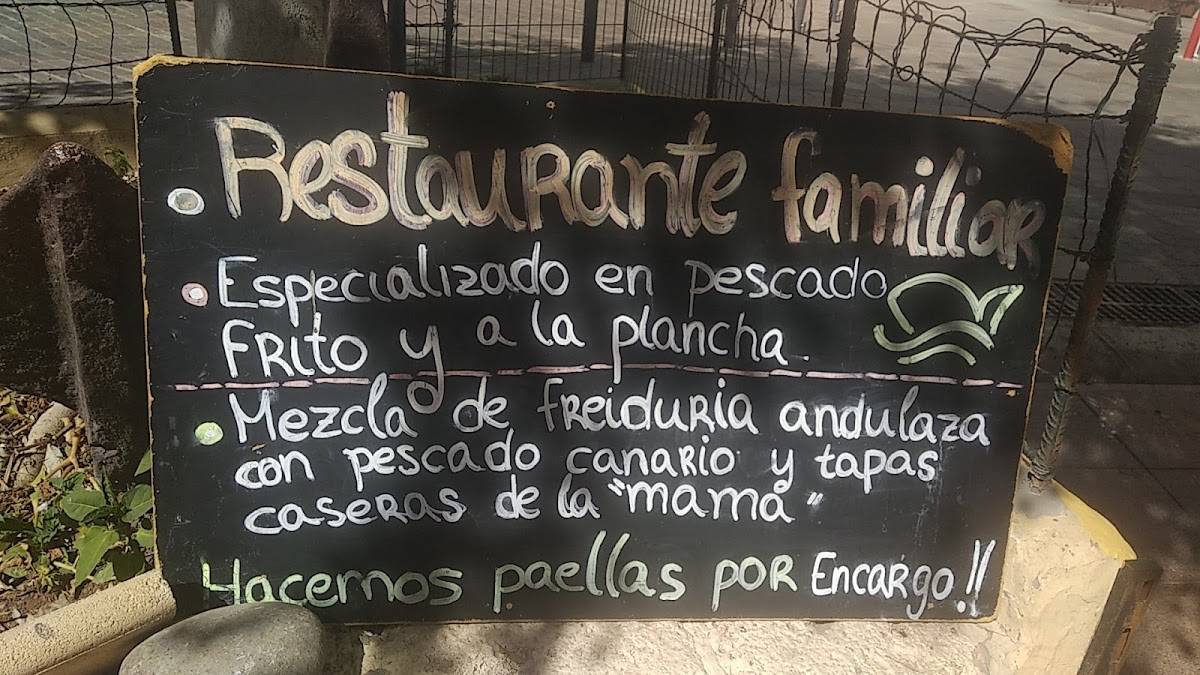 . Restaurante familiar
. Especializado en pescado
Frito y a la plancha
. Mezcla de freiduria andulaza
con pescado canario y tapas
caseras de la "mamá"
Hacemos paellas por Encargo!!